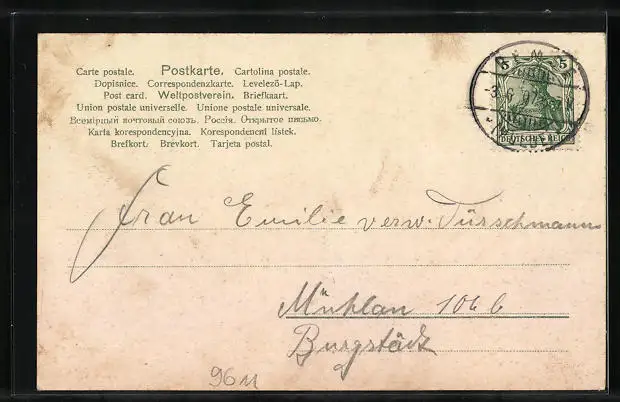 Carte postale. Postkarte. Cartolina postale.
Dopisnice. Correspondenzkarte. Levelező-Lap.
Post card. Weltpostverein. Briefkaart.
Union postale universelle. Unione postale universale.
Всемірный почтовый союзъ. Россія. Открытое письмо.
Karta korespondencyjna. Korespondenční lístek.
Brefkort. Brevkort. Tarjeta postal.
5 5
DEUTSCHES REICH
Frau Emilie verw. Türschmann
Mühlau 106 b
Burgstädt
9611